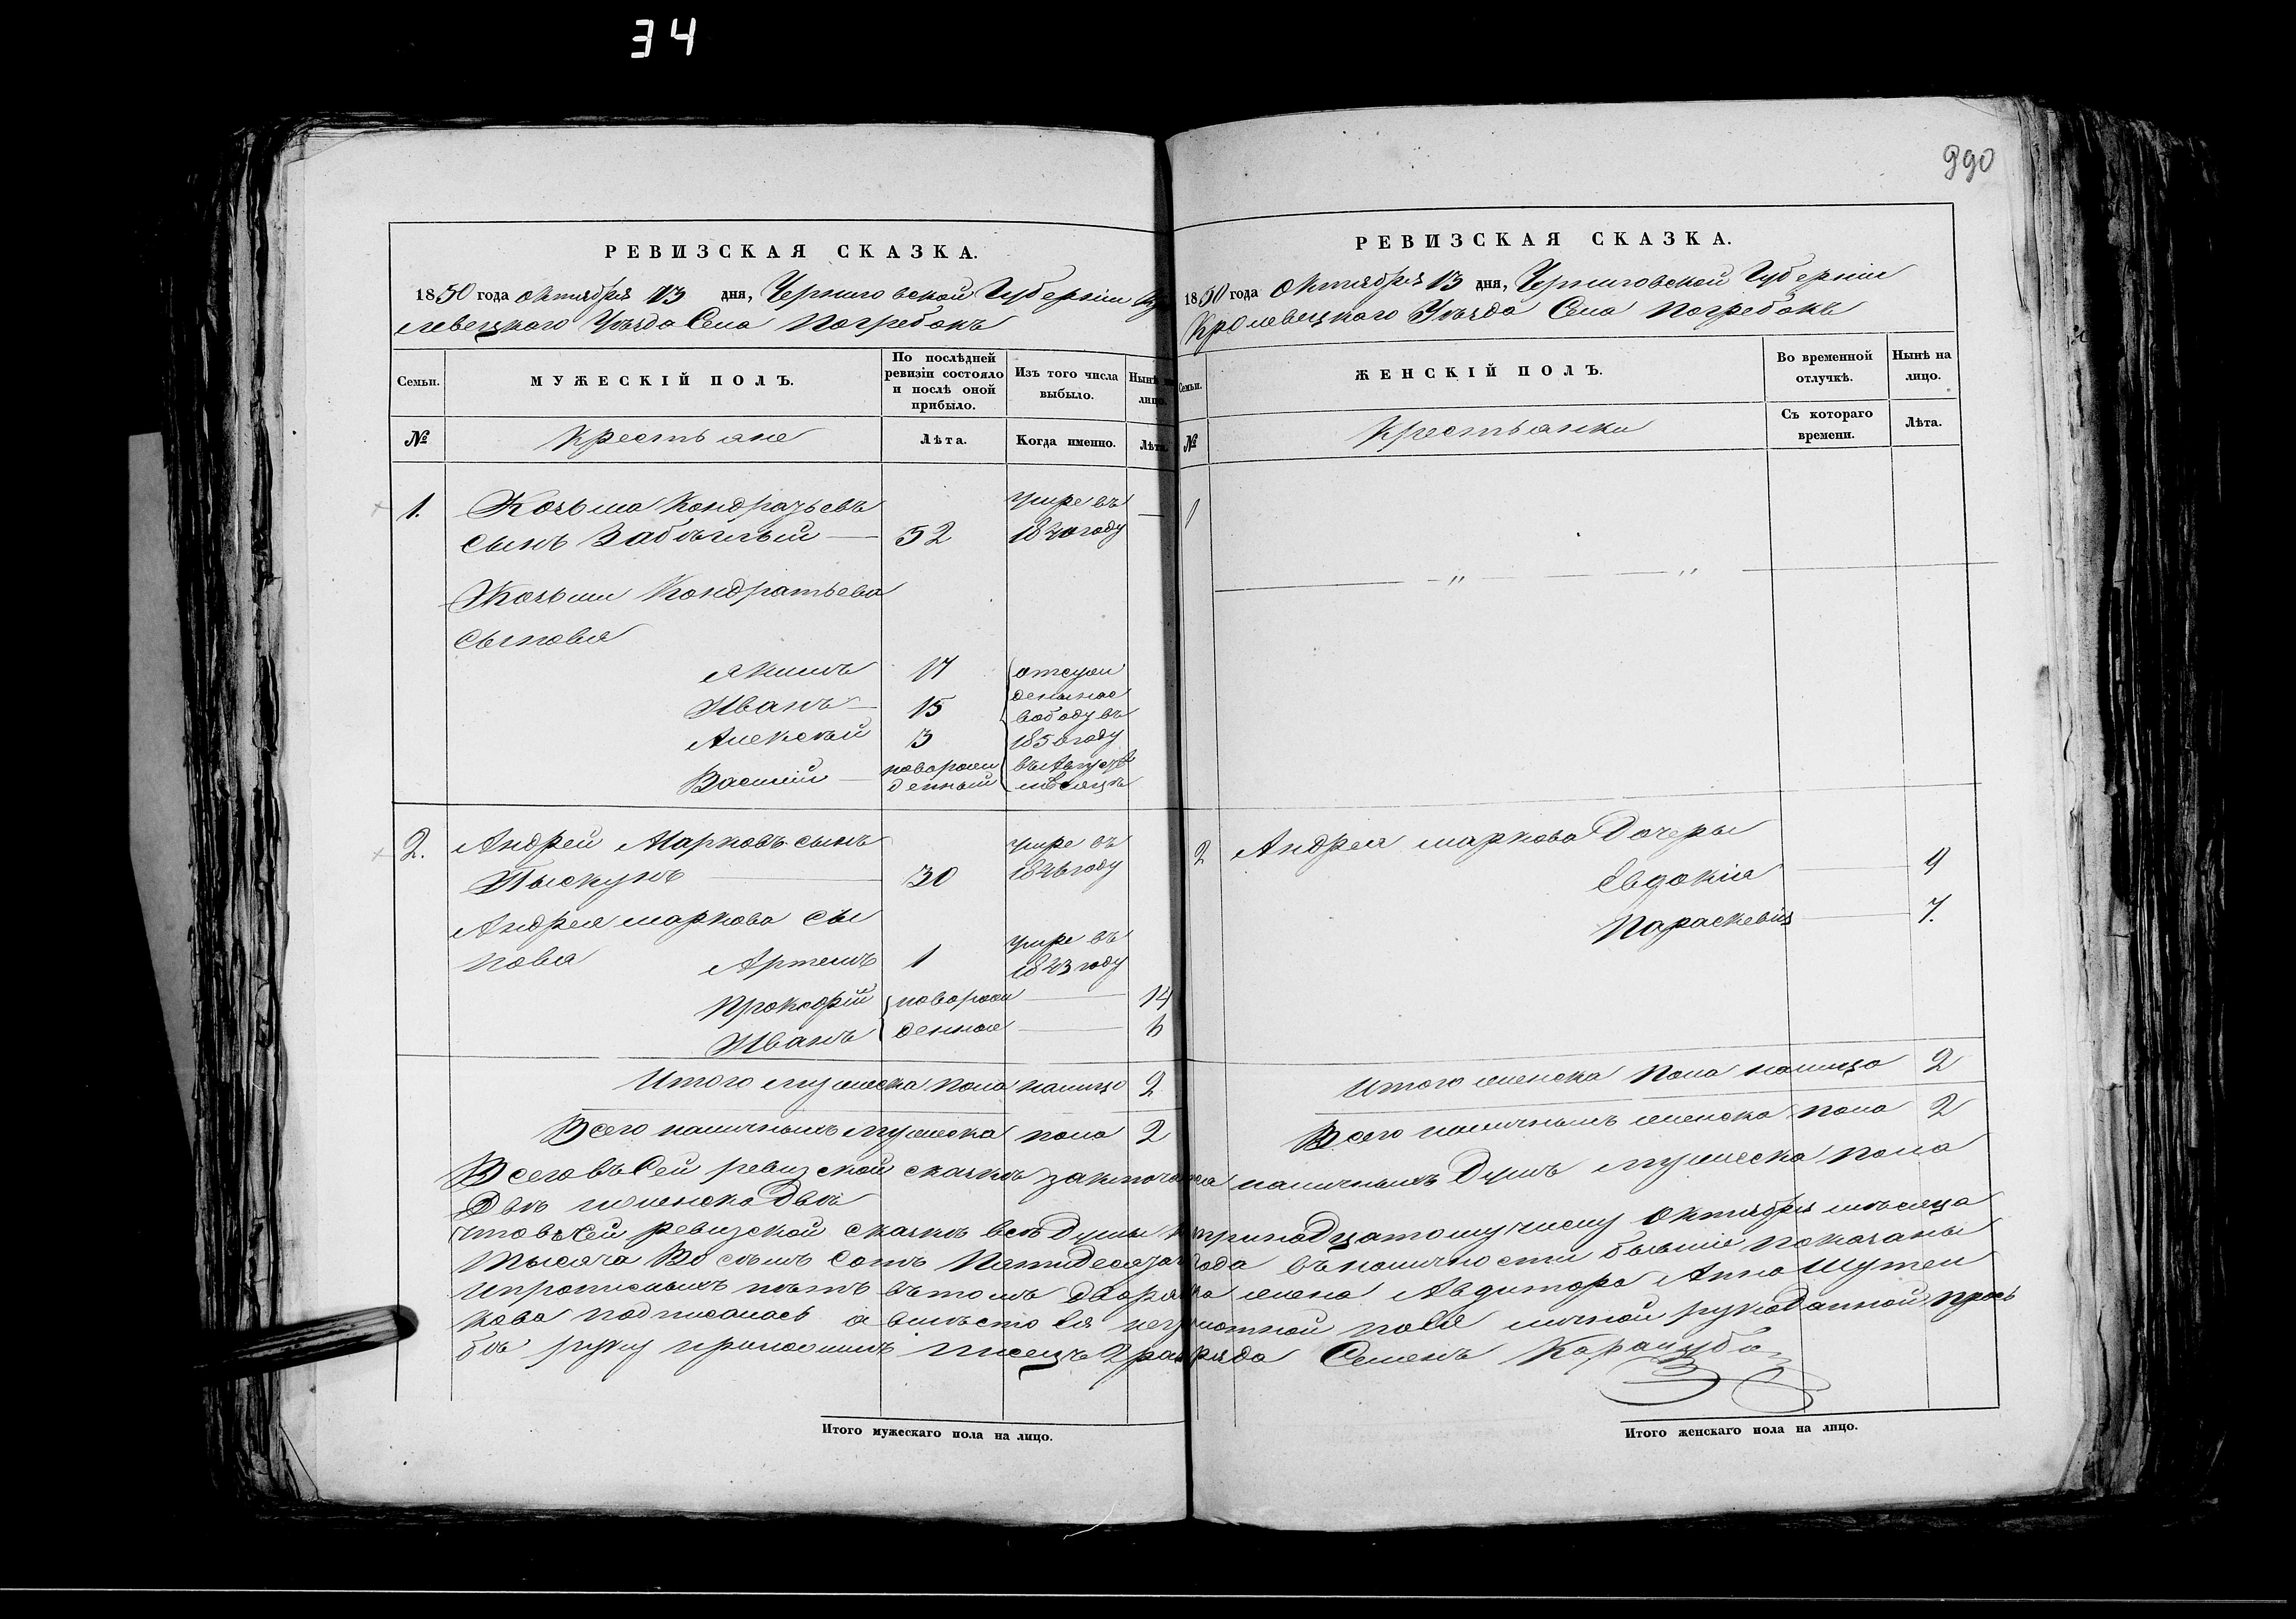 34
990
РЕВИЗСКАЯ СКАЗКА.
1850 года октября 13 дня, Черниговской Губернiи Кро
левецкаго Уѣзда Села Погребокъ
Семьи.
МУЖЕСКІЙ ПОЛЪ.
По послѣдней ревизіи состояло и послѣ оной прибыло.
Изъ того числа выбыло.
Нынѣ на лицо.
№
Крестьяне
Лѣта.
Когда именно.
Лѣта.
1. Козьма Кондратьевъ умре въ —
сынъ Забѣглый — 52 1840 году
Козьми Кондратьева
сыновья
Якимъ 17 отсужденные
Иванъ — 15 въ
Алексѣй 3 1850 году
Василій — новорожденный въ Августѣ мѣсяцѣ
2. Андрей Марковъ сынъ умре въ
Пыскунъ — 30 1846 году
Андрея маркова сы
новья Артемъ 1 умре въ 1843 году
Прокофій новорож — 14
Иванъ денные — 6
Итого мужеска пола налицо 2
Всего наличныхъ мужеска пола 2
РЕВИЗСКАЯ СКАЗКА.
1850 года октября 13 дня, Черниговской Губерніи
Кролевецкаго Уѣзда Села Погребокъ
Семьи.
ЖЕНСКІЙ ПОЛЪ.
Во временной отлучкѣ.
Нынѣ на лицо.
№
Крестьянки
Съ котораго времени.
Лѣта.
1
— „ — — „ —
2 Андрея маркова Дочеры
Евдокія — 9
Параскевія — 7.
Итого женска пола налицо 2
Всего наличныхъ женска пола 2
Всего въ Сей ревизской сказкѣ заключается наличныхъ Душъ мужеска пола
Двѣ женска Двѣ
что въ Сей ревизской сказкѣ всѣ Души к тринадцатому числу Октября мѣсяца
тысяча Восѣмъ Сотъ Пятидесятаго года въ наличности бывшіе показаны
и прописныхъ нѣтъ въ томъ Дворянка жена Авдитора Анна Шутен
кова подписалась а вмѣсто Ея неграмотной по Ея личной рукоданной прозь
бѣ руку приложилъ писецъ 2 разряда Семенъ Карацуба
Итого мужескаго пола на лицо.
Итого женскаго пола на лицо.